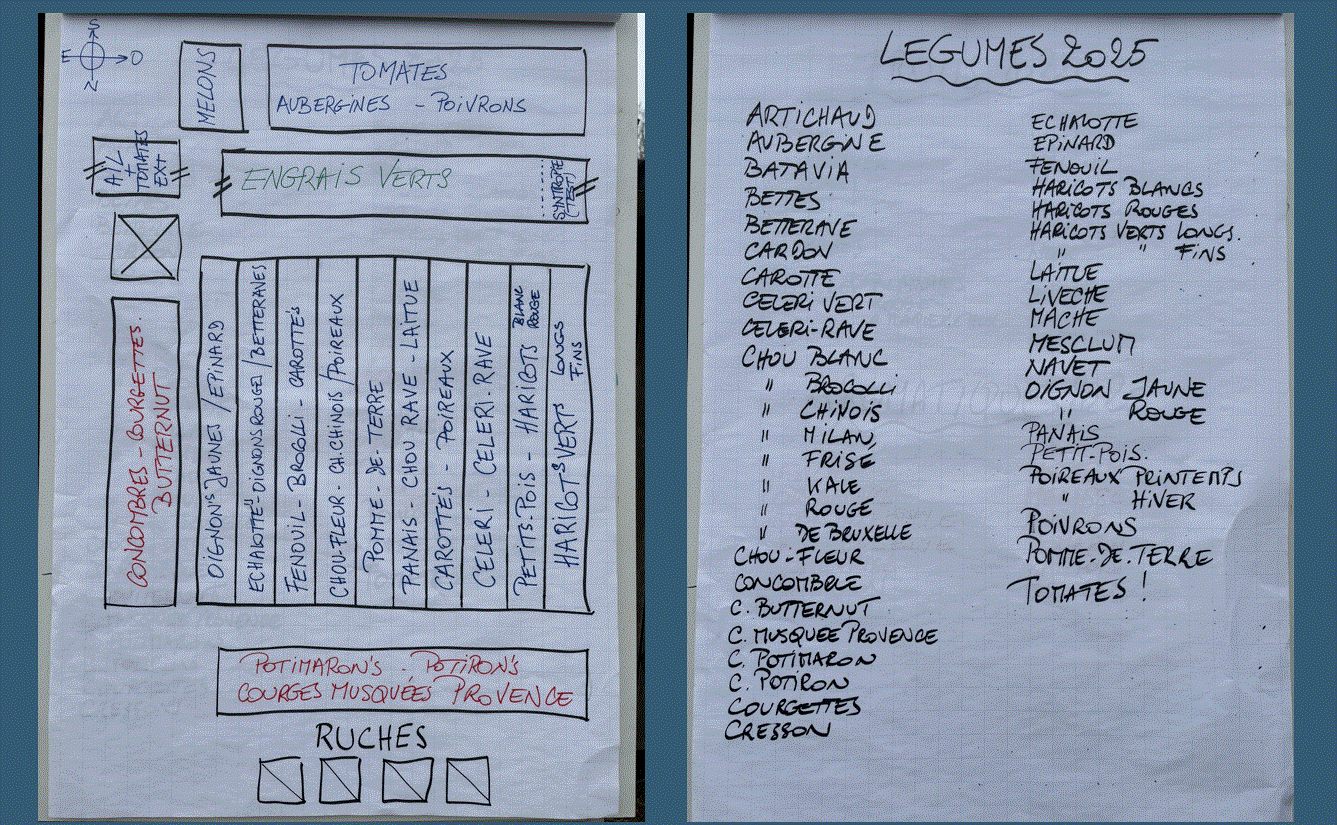 S
E
O
N
MELONS
TOMATES
AUBERGINES - POIVRONS
AIL
+
TOMATES
EXT
ENGRAIS VERTS
SYNTROPIE
(TEST)
CONCOMBRES - COURGETTES.
BUTTERNUT
OIGNON'S JAUNES / EPINARD
ECHALOTTE'S - OIGNONS ROUGES / BETTERAVES
FENOUIL - BROCOLLI - CAROTTE'S
CHOU-FLEUR - CH.CHINOIS / POIREAUX
POMME - DE - TERRE
PANAIS - CHOU RAVE - LAITUE
CAROTTES - POIREAUX
CELERI - CELERI-RAVE
PETITS-POIS - HARICOTS BLANC
ROUGE
HARICOTS VERTS LONGS
FINS
POTIMARON'S - POTIRON'S
COURGES MUSQUÉES PROVENCE
RUCHES
LEGUMES 2025
ARTICHAUD
AUBERGINE
BATAVIA
BETTES
BETTERAVE
CARDON
CAROTTE
CELERI VERT
CELERI-RAVE
CHOU BLANC
" BROCOLLI
" CHINOIS
" MILAN
" FRISÉ
" KALE
" ROUGE
" DE BRUXELLE
CHOU-FLEUR
CONCOMBRE
C. BUTTERNUT
C. MUSQUEE PROVENCE
C. POTIMARON
C. POTIRON
COURGETTES
CRESSON
ECHALOTTE
EPINARD
FENOUIL
HARICOTS BLANCS
HARICOTS ROUGES
HARICOTS VERTS LONGS.
" " FINS
LAITUE
LIVECHE
MACHE
MESCLUM
NAVET
OIGNON JAUNE
" ROUGE
PANAIS
PETIT-POIS.
POIREAUX PRINTEMPS
" HIVER
POIVRONS
POMME.DE.TERRE
TOMATES !